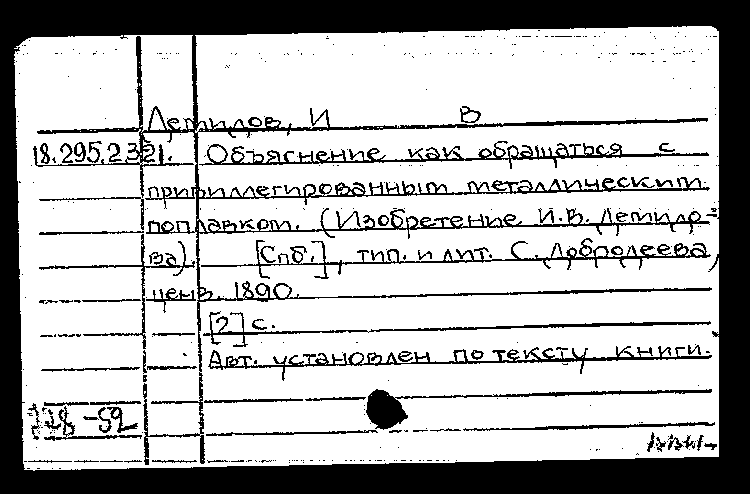 Демидов, И В
18.295.2321. Объяснение как обращаться с
привиллегированным металлическим
поплавком. (Изобретение И.В. Демидо-
ва). [Спб.], тип. и лит. С. Добродеева,
ценз. 1890.
[2] с.
Авт. установлен по тексту книги.
-59